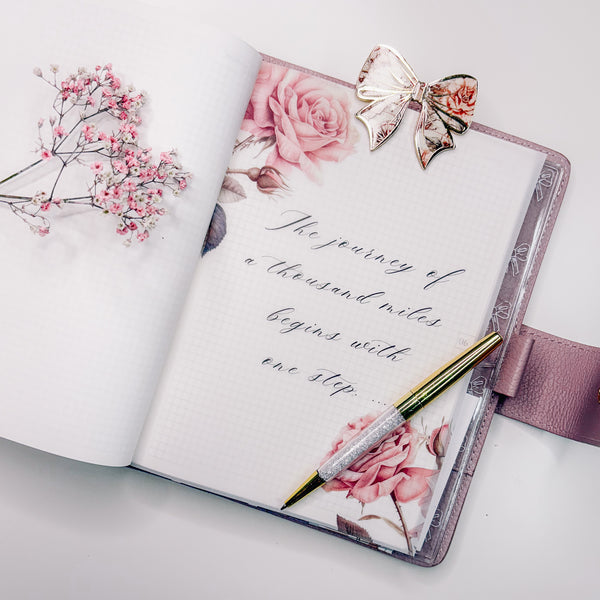 The journey of
a thousand miles
begins with
one step. ....